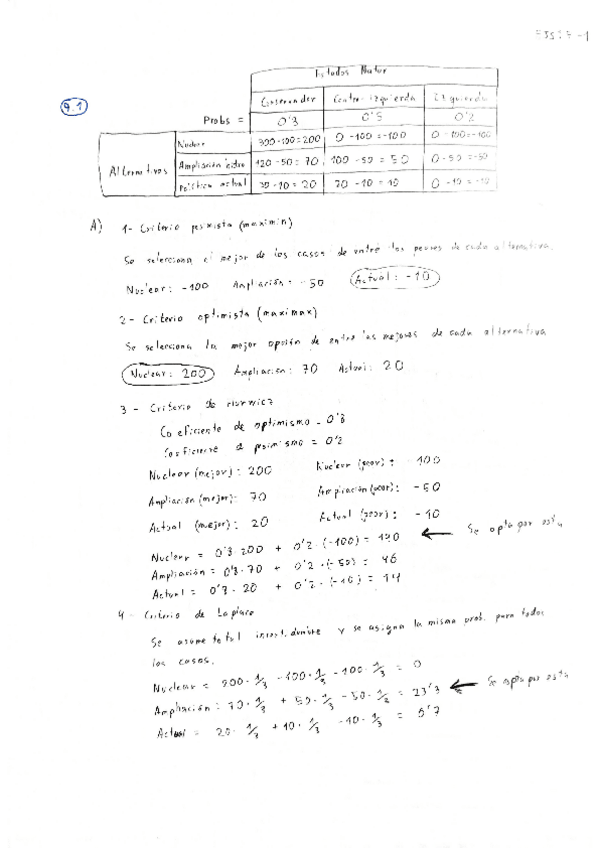 9.1
Estados Natur
Conservador Centro-izquierda Izquierda
Probs = 0'3 0'5 0'2
Alternativas
Nuclear 300-100=200 0-100=-100 0-100=-100
Ampliación 120-50=70 100-50=50 0-50=-50
Política actual 30-10=20 0-10=-10
A) 1- Criterio pesimista (maximin)
Se selecciona el mejor de los casos de entre los peores de cada alternativa.
Nuclear: -100 Ampliación: -50 Actual: -10
2- Criterio optimista (maximax)
Se selecciona la mejor opción de entre las mejores de cada alternativa
Nuclear: 200 Ampliación: 70 Actual: 20
3- Criterio de Hurwicz
Coeficiente de optimismo = 0'8
Coeficiente de pesimismo = 0'2
Nuclear (mejor): 200 Nuclear (peor): -100
Ampliación (mejor): 70 Ampliación (peor): -50
Actual (mejor): 20 Actual (peor): -10
Nuclear = 0'8·200 + 0'2·(-100) = 140 ← Se opta por esta
Ampliación = 0'8·70 + 0'2·(-50) = 46
Actual = 0'8·20 + 0'2·(-10) = 14
4- Criterio de Laplace
Se asume total incertidumbre y se asigna la misma prob. para todos
los casos.
Nuclear = 200·1/3 - 100·1/3 - 100·1/3 = 0
Ampliación = 70·1/3 + 50·1/3 - 50·1/3 = 23'3 ← Se opta por esta
Actual = 20·1/3 + 10·1/3 - 10·1/3 = 6'7